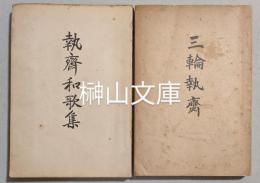 三輪執齋
執齊和歌集
榊山文庫